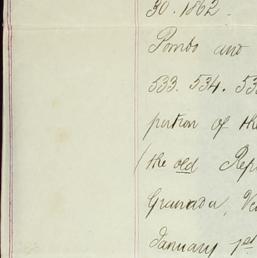 30. 1862.
Pombo and
533. 534. 53
portion of the
(the old Rep
Granada, Ve
January 1st